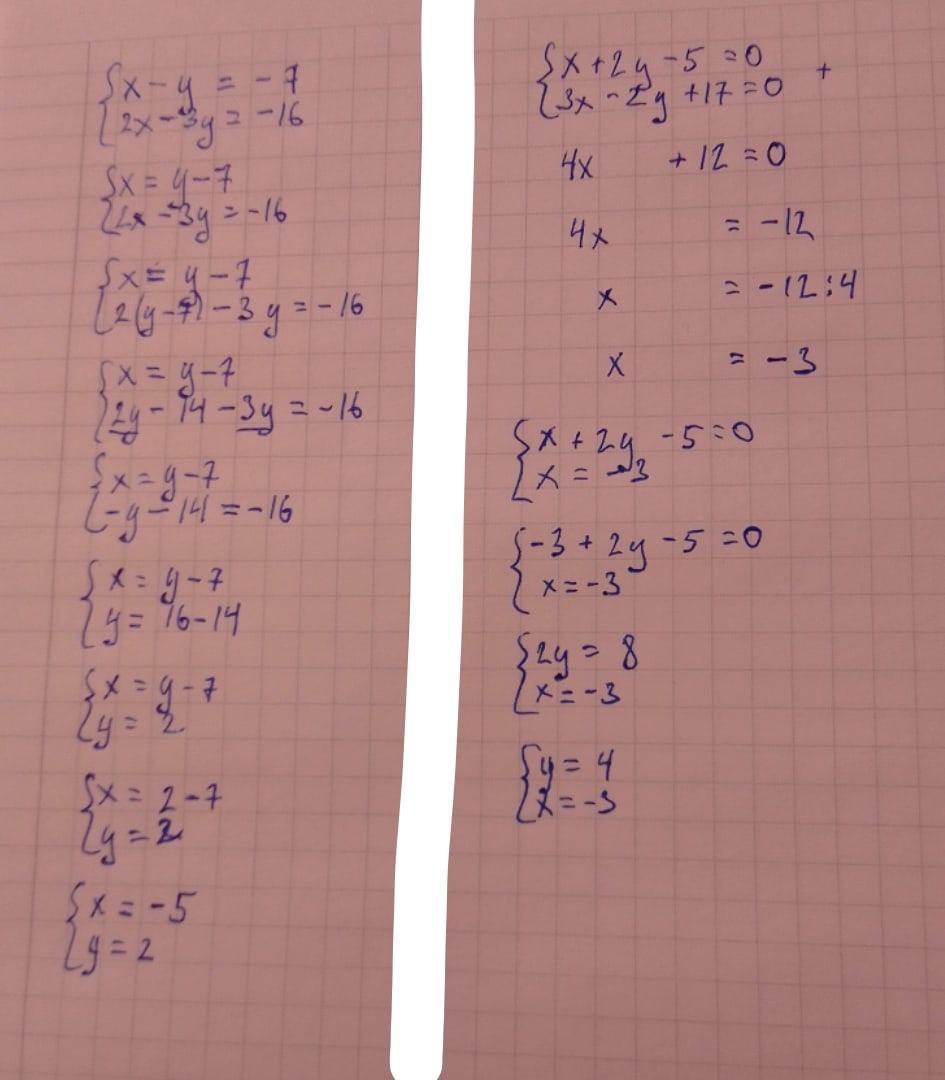 x - y = -7
2x - 3y = -16
x = y - 7
2x - 3y = -16
x = y - 7
2(y - 7) - 3y = -16
x = y - 7
2y - 14 - 3y = -16
x = y - 7
-y - 14 = -16
x = y - 7
y = 16 - 14
x = y - 7
y = 2
x = 2 - 7
y = 2
x = -5
y = 2
x + 2y - 5 = 0 +
3x - 2y + 17 = 0
4x + 12 = 0
4x = -12
x = -12 : 4
x = -3
x + 2y - 5 = 0
x = -3
-3 + 2y - 5 = 0
x = -3
2y = 8
x = -3
y = 4
x = -3